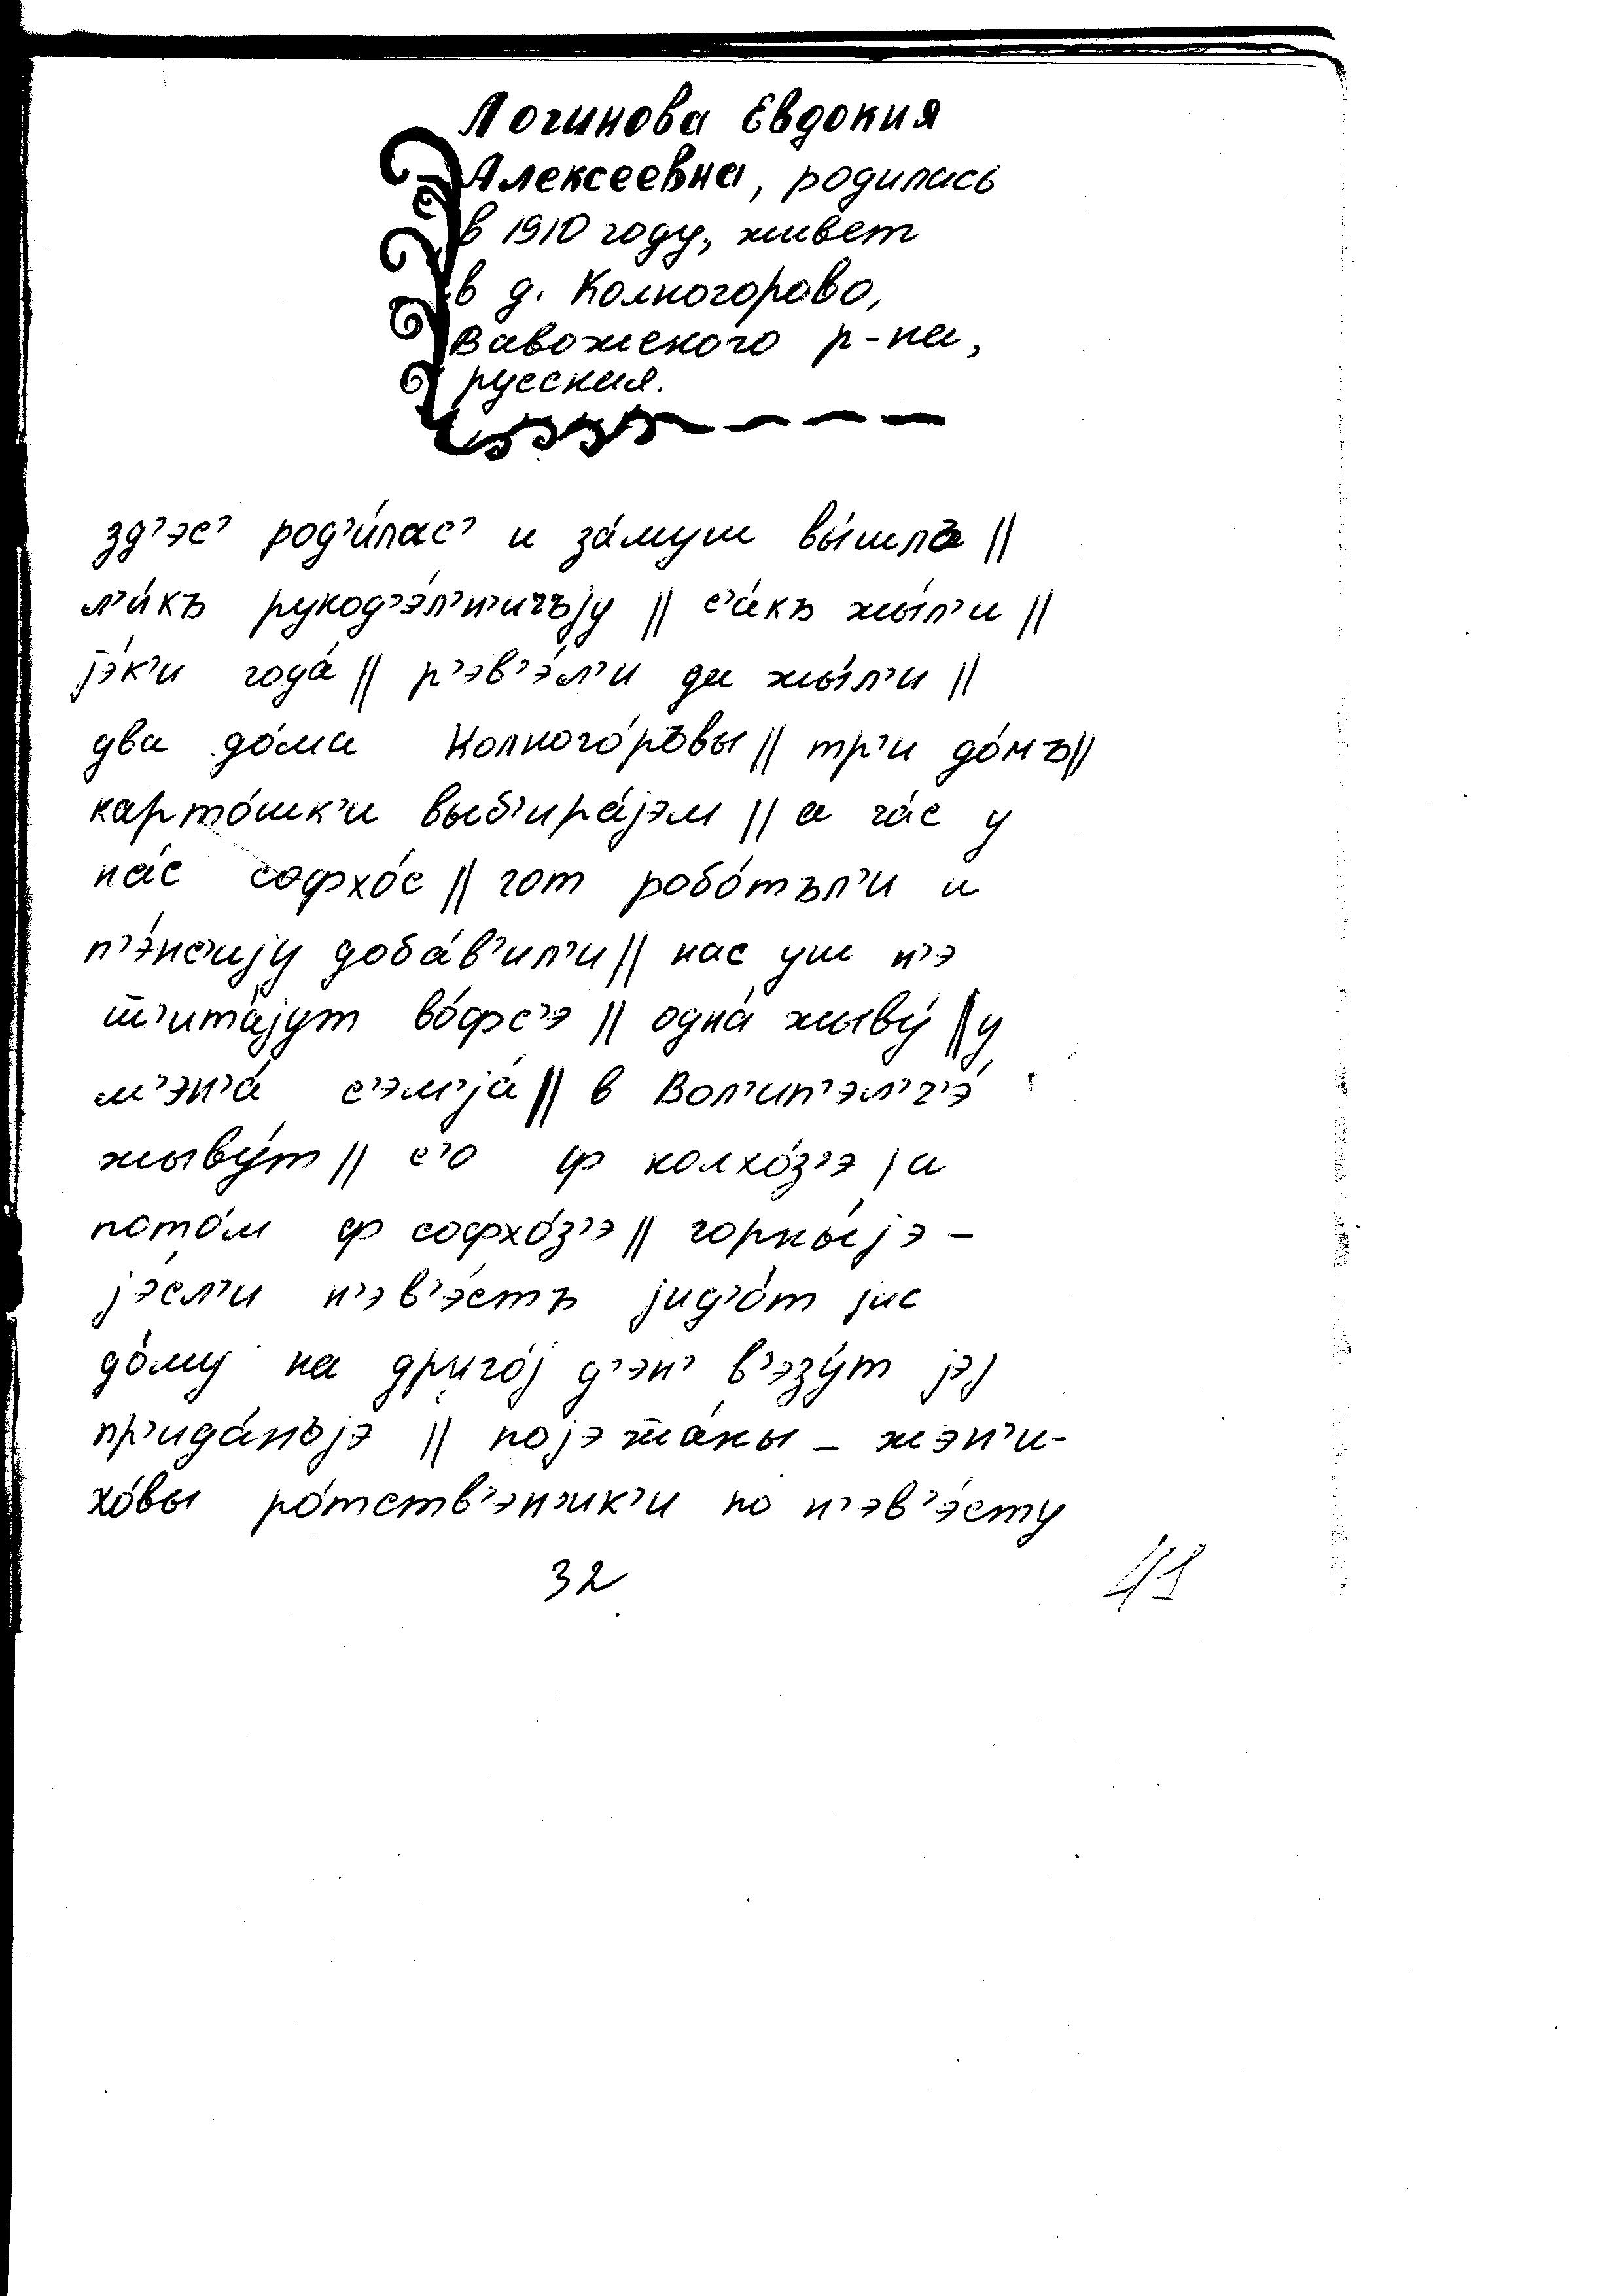 Логинова Евдокия
Алексеевна, родилась
в 1910 году, живет
в д. Колногорово,
Вавожского р-на,
русская.
зд’эс’ род’и́лас’ и за́муш вы́шла ||
л’и́къ рукод’э́л’н’ичъjу || с’а́къ жы́л’и ||
jэ́к’и года́ || р’эв’э́л’и да жы́л’и ||
два до́ма Колного́ръвы || тр’и до́мъ ||
карто́шк’и выб’ира́jэм || а ча́с у
на́с софхо́с || гот робо́тъл’и и
п’э́нс’иjу доба́в’ил’и || нас уш н’э
ш̅’ита́jут во́фс’э || одна́ жыву́ || у
м’эн’а́ с’эм’jа́ || в Вол’ип’эл’г’э́
жыву́т || с’о ф колхо́з’э | а
пото́м ф софхо́з’э || горны́jэ –
jэ́сл’и н’эв’э́стъ jид’о́т jис
до́му на друго́j д’эн’ в’эзу́т jэj
пр’ида́нъjэ || поjэш̅а́ны – жэн’и-
хо́вы ро́тств’эн’ик’и по н’эв’э́сту
32
41